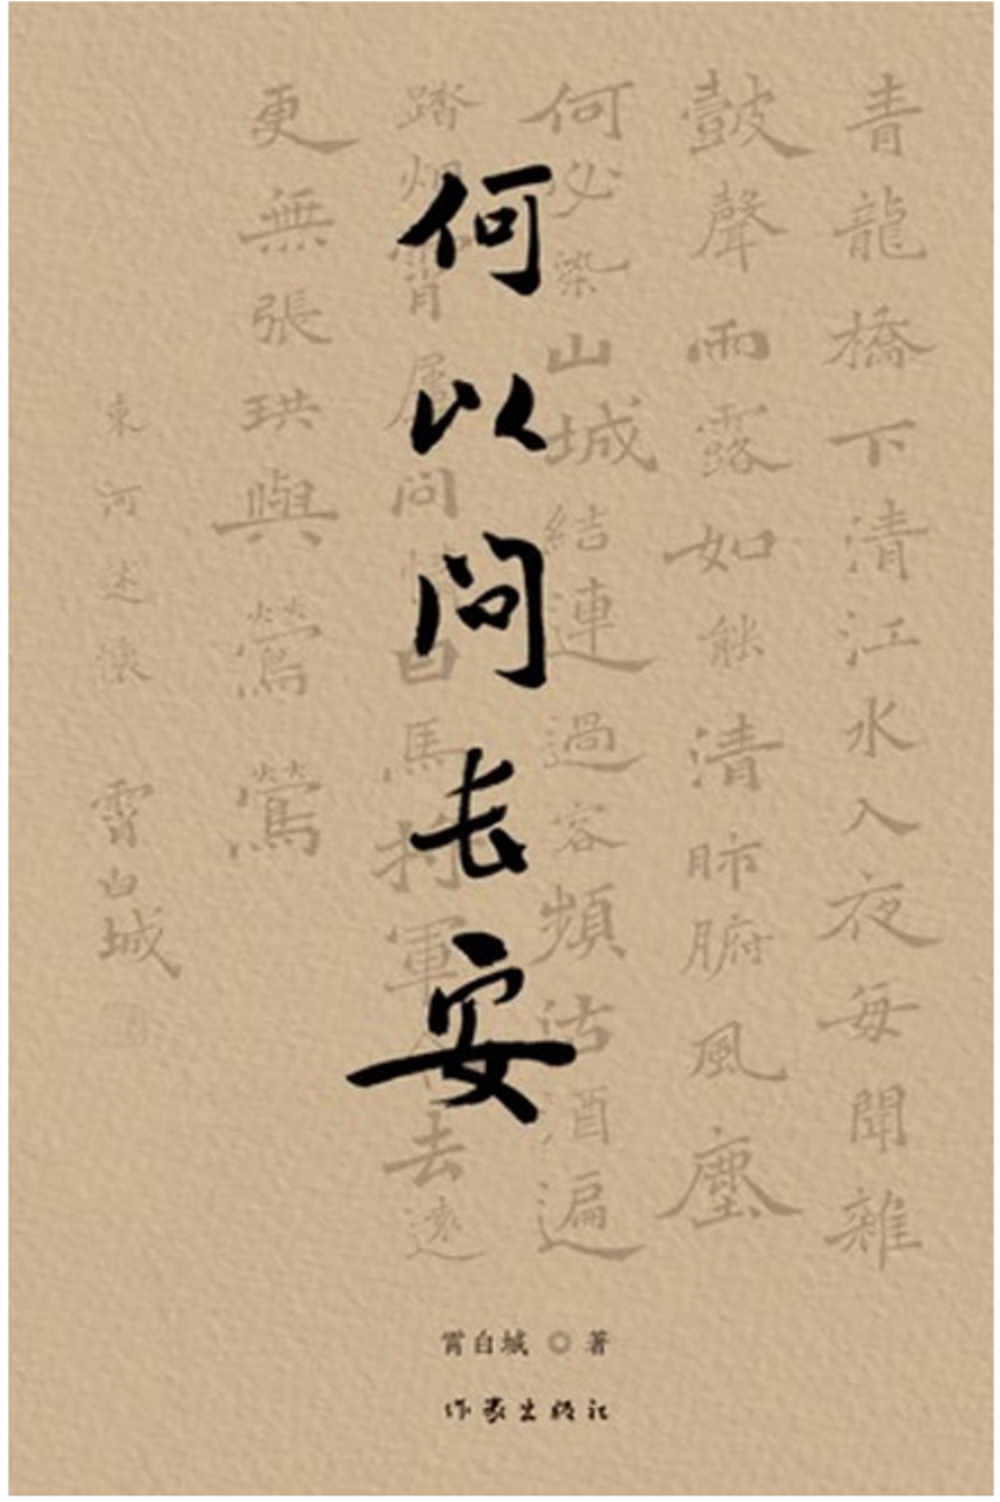 何以问长安
青龍橋下清江水入夜每聞雜
鼓聲雨露如能清肺腑風塵
何必染山城結連過客頻沽酒遍
踏問白馬軍去遠
更無張珙與鶯鶯
東河述懷 霄白城
霄白城 ◎ 著
作家出版社